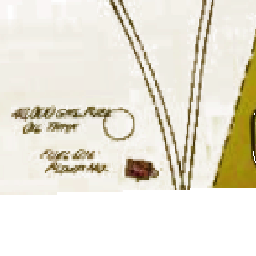 40,000 GAL. FUEL
OIL TANK
FUEL OIL